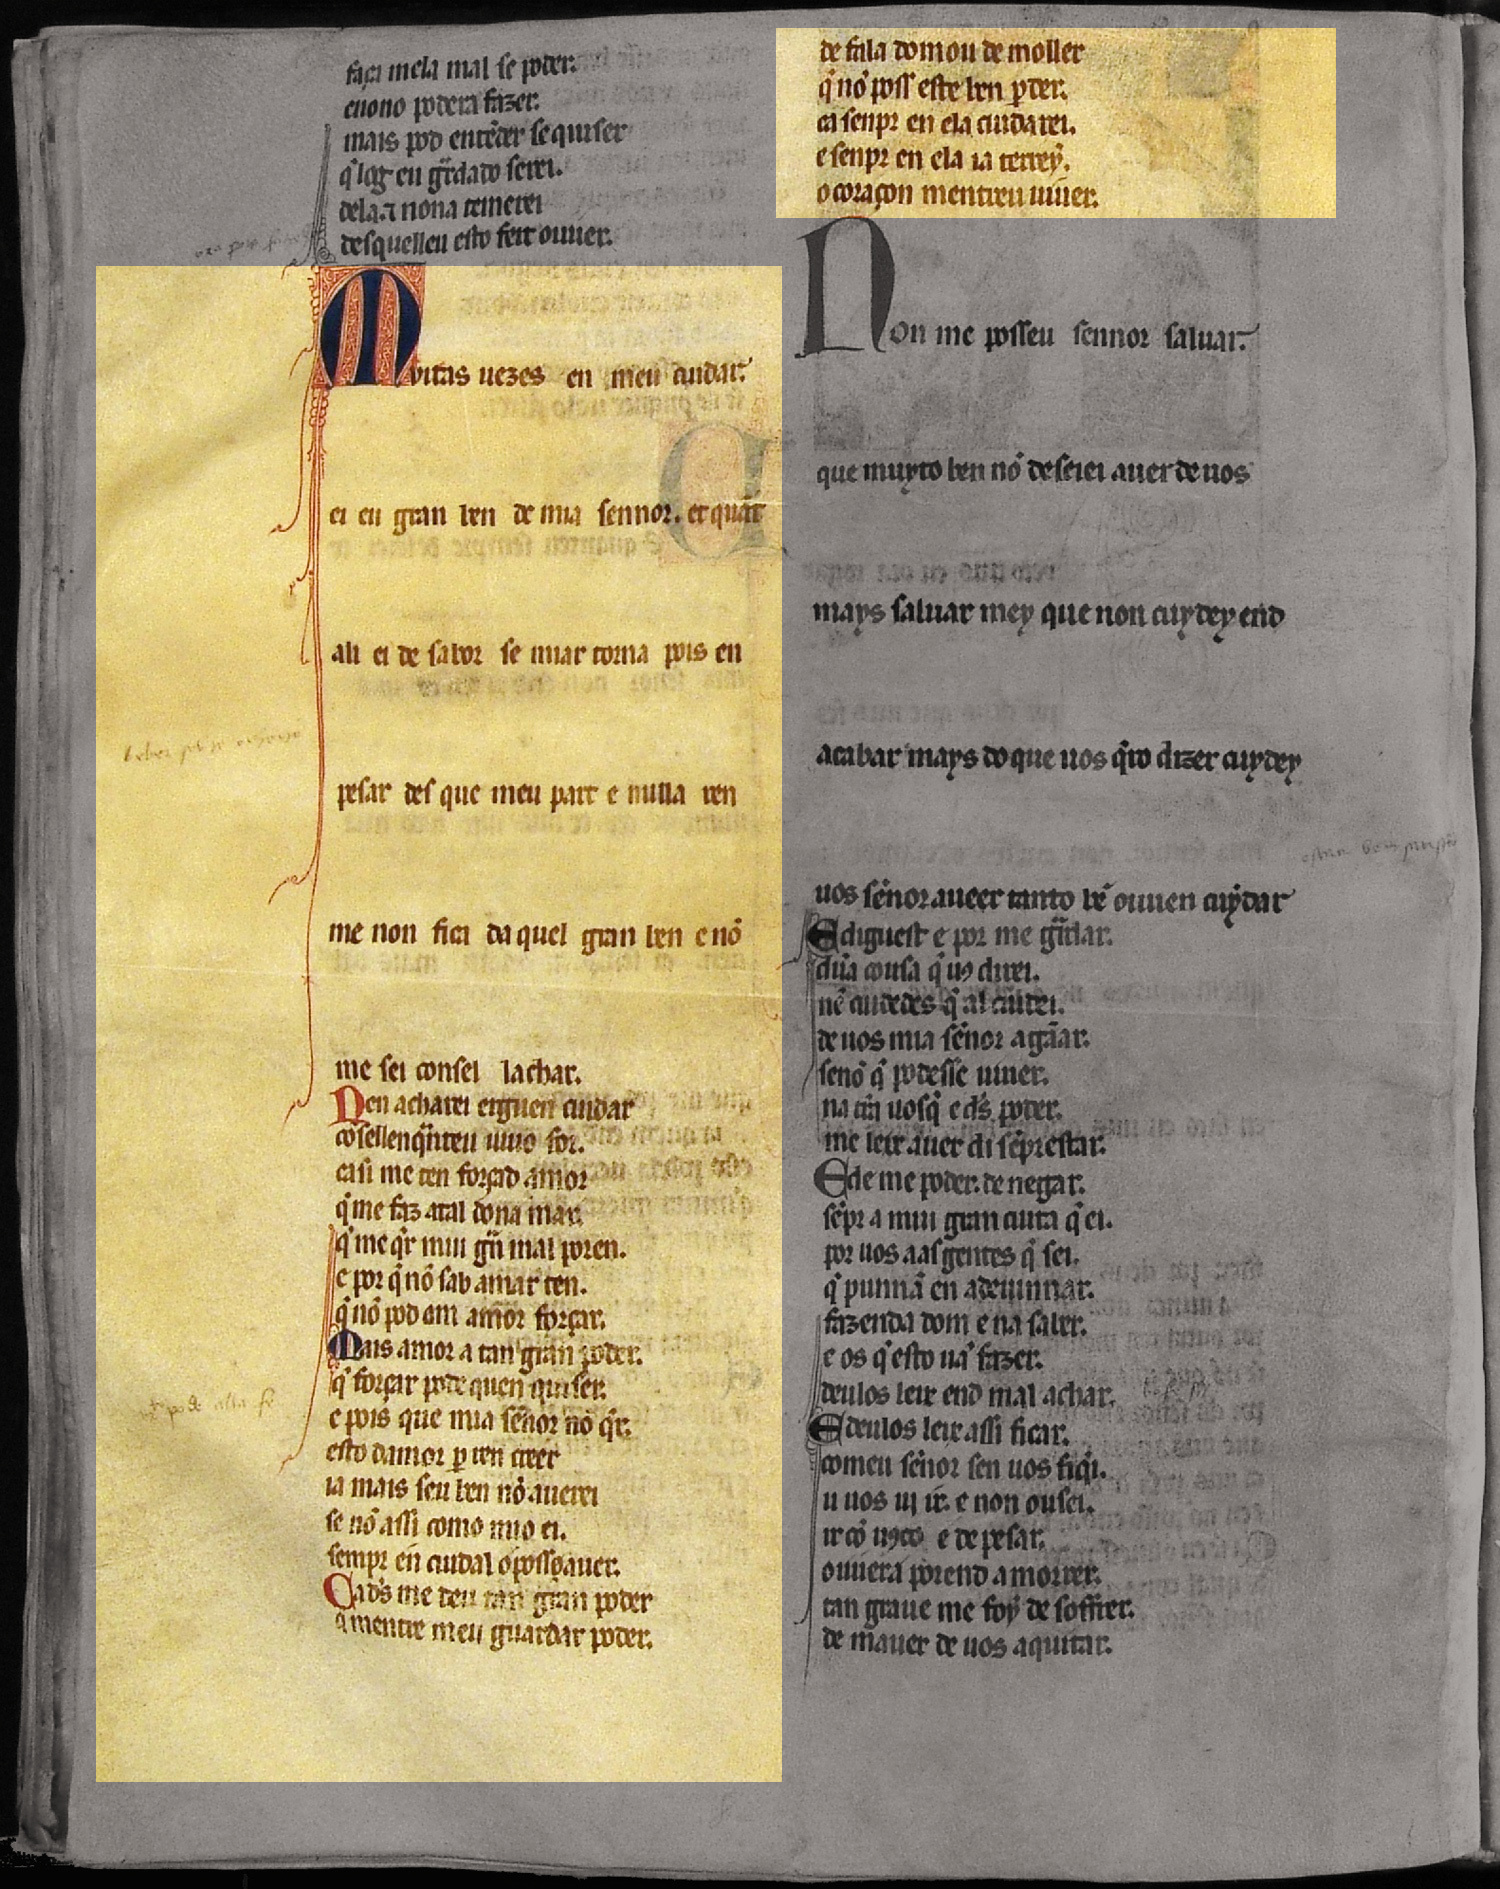 faça mela mal se poder.
enono podera fazer.
mais pod entẽder se quiser
q̃ log eu gr̃dado serei.
dela. ⁊ nona temerei
des quelleu esto feit ouuer.
Muitas uezes en meu cuidar.
ei eu gran ben de mia sennor. et quãt
ali ei de sabor se mar torna pois en
pesar des que meu part e nulla ren
me non fica daquel gran ben e nõ
me sei consel lachar.
Nen acharei erguen cuidar
cõsellenq̃nteu uiuo for.
ca si me ten forçado amor
q̃ me faz atal dona mar.
q̃ me q̃r mui gr̃n mal poren.
e por q̃ nõ sab amar ren.
q̃ nõ pod om amor forçar.
Mais amor a tan gran poder.
q̃ forçar pode quen quiser.
e pois que mia sẽnor nõ q̃r.
esto damor ꝑ ren creer
ia mais seu ben nõ auerei
se nõ assi como mio ei.
sempr en cuidal o posso auer.
Ca d̃s me deu tan gran poder
q̃ mentre meu guardar poder.
de fala domou de moller
q̃ nõ poss este ben ꝑder.
ca senpr en ela cuidarei.
e senpr en ela ia terrey.
o coraçon mentreu uiuer.
Non me posseu sennor saluar.
que muyto ben nõ deseiei auer de uos
mays saluar mey que non cuydey end
acabar mays do que uos q̃ro dizer cuydey
uos sẽnor aueer tanto bẽ ouuen cuydar
E diguest e por me gr̃dar.
dũa cousa q̃ uꝯ direi.
nẽ cuidedes q̃ al cuidei.
de uos mia sẽnor a gãar.
senõ q̃ podesse uiuer.
na tr̃a uosq̃ e d̃s poder.
me leix auer di sẽpr estar.
E de me poder. de negar.
sẽpr a mui gran cuita q̃ ei.
por uos aas gentes q̃ sei.
q̃ punnã en adeuinnar.
fazenda dom e na saber.
e os q̃ esto uã fazer.
deulos leix end mal achar.
E deulos leix assi ficar.
comeu sẽnor sen uos fiq̃i.
u uos ui ir. e non ousei.
ir cõ uꝯco e de pesar.
ouuera porend a morrer.
tan graue me foy de soffrer.
de mauer de uos a quitar.